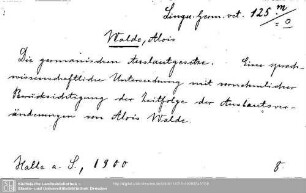 Lingu. Germ. vet. 125 m
/=0
Walde, Alois
Die germanischen Auslautgesetze. Eine sprach-
wissenschaftliche Untersuchung mit vornehmlicher
Berücksichtigung der Zeitfolge der Auslautsver-
änderungen von Alois Walde.
Halle a. S., 1900 8
Sächsische Landesbibliothek -
Staats- und Universitätsbibliothek Dresden